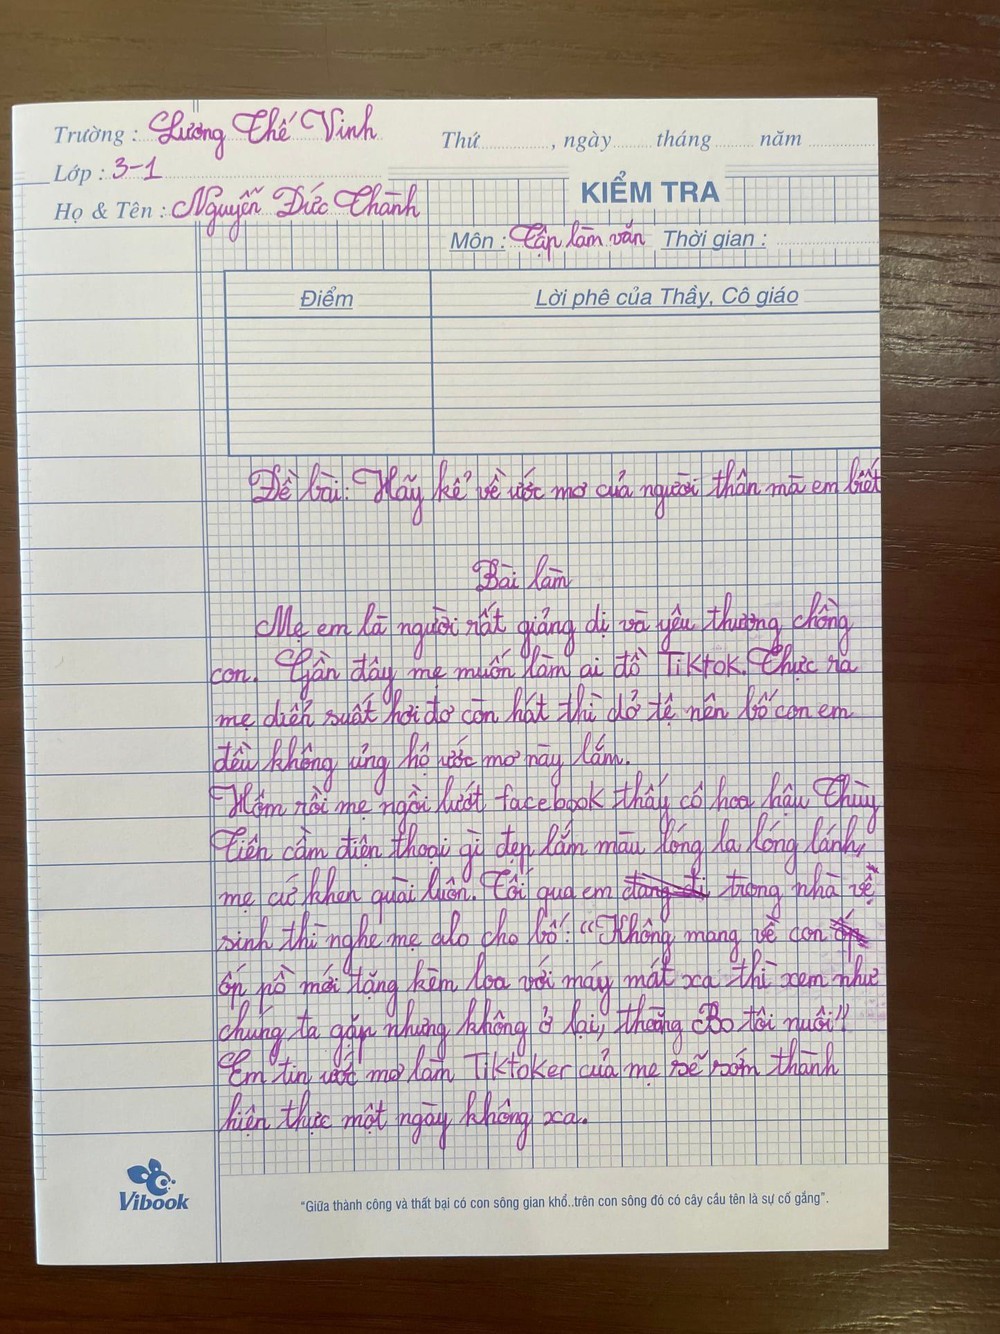 Trường : Lương Thế Vinh
Thứ , ngày tháng năm
Lớp : 3-1
KIỂM TRA
Họ & Tên : Nguyễn Đức Thành
Môn : Tập làm văn Thời gian :
Điểm
Lời phê của Thầy, Cô giáo
Đề bài: Hãy kể về ước mơ của người thân mà em biết
Bài làm
Mẹ em là người rất giảng dị và yêu thương chồng
con. Gần đây mẹ muốn làm ai đồ Tiktok. Thực ra
mẹ diễn suất hơi đơ còn hát thì dở tệ nên bố con em
đều không ủng hộ ước mơ này lắm.
Hôm rồi mẹ ngồi lướt facebook thấy cô hoa hậu Thùy
Tiên cầm điện thoại gì đẹp lắm màu lóng la lóng lánh,
mẹ cứ khen quài luôn. Tối qua em trong nhà vệ
sinh thì nghe mẹ alo cho bố: "Không mang về con
ốp pồ mới tặng kèm loa với máy mát xa thì xem như
chúng ta gặp nhưng không ở lại, thằng Bo tôi nuôi"
Em tin ước mơ làm Tiktoker của mẹ sẽ sớm thành
hiện thực một ngày không xa.
Vibook
"Giữa thành công và thất bại có con sông gian khổ..trên con sông đó có cây cầu tên là sự cố gắng".